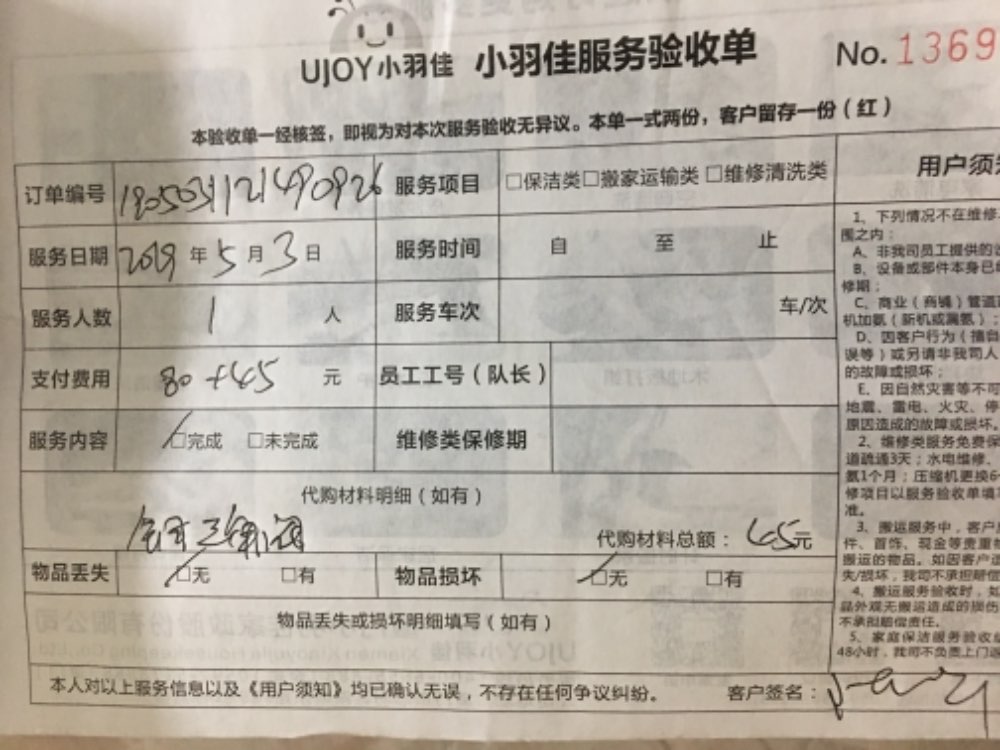 UJOY小羽佳 小羽佳服务验收单 No.1369
本验收单一经核签，即视为对本次服务验收无异议。本单一式两份，客户留存一份（红）
订单编号 1905031121490926 服务项目 □保洁类□搬家运输类□维修清洗类
服务日期 2019年5月3日 服务时间 自 至 止
服务人数 1 人 服务车次 车/次
支付费用 80+45 元 员工工号（队长）
服务内容 □完成 □未完成 维修类保修期
代购材料明细（如有）
代购材料总额：45元
物品丢失 □无 □有 物品损坏 □无 □有
物品丢失或损坏明细填写（如有）
本人对以上服务信息以及《用户须知》均已确认无误，不存在任何争议纠纷。 客户签名：
用户须
1、下列情况不在维修
围之内：
A、非我司员工提供的
B、设备或部件本身已
修期；
C、商业（商铺）管道
机加氨（新机或漏氨）；
D、因客户行为（擅自
误等）或另请非我司人
的故障或损坏；
E、因自然灾害等不可
地震、雷电、火灾、停
原因造成的故障或损坏。
2、维修类服务免费保
道疏通3天；水电维修、
氨1个月；压缩机更换6
修项目以服务验收单填
准。
3、搬运服务中，客户
件、首饰、现金等贵重
搬运的物品。如因客户
失/损坏，我司不承担赔
4、搬运服务验收时，如
品外观无搬运造成的损伤
不承担赔偿责任。
5、家庭保洁服务验收
48小时，我司不负责上门